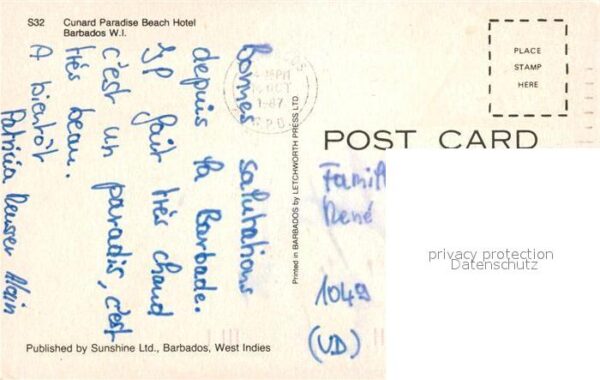 S32 Cunard Paradise Beach Hotel
Barbados W.I.
Bonnes salutations
depuis la Barbade.
Il fait très chaud
c'est un paradis, c'est
très beau.
A bientôt
Patricia Alain
PM
OCT
1987
G.P.O.
PLACE
STAMP
HERE
POST CARD
Printed in BARBADOS by LETCHWORTH PRESS LTD
Famill
René
1049
(VD)
privacy protection
Datenschutz
Published by Sunshine Ltd., Barbados, West Indies